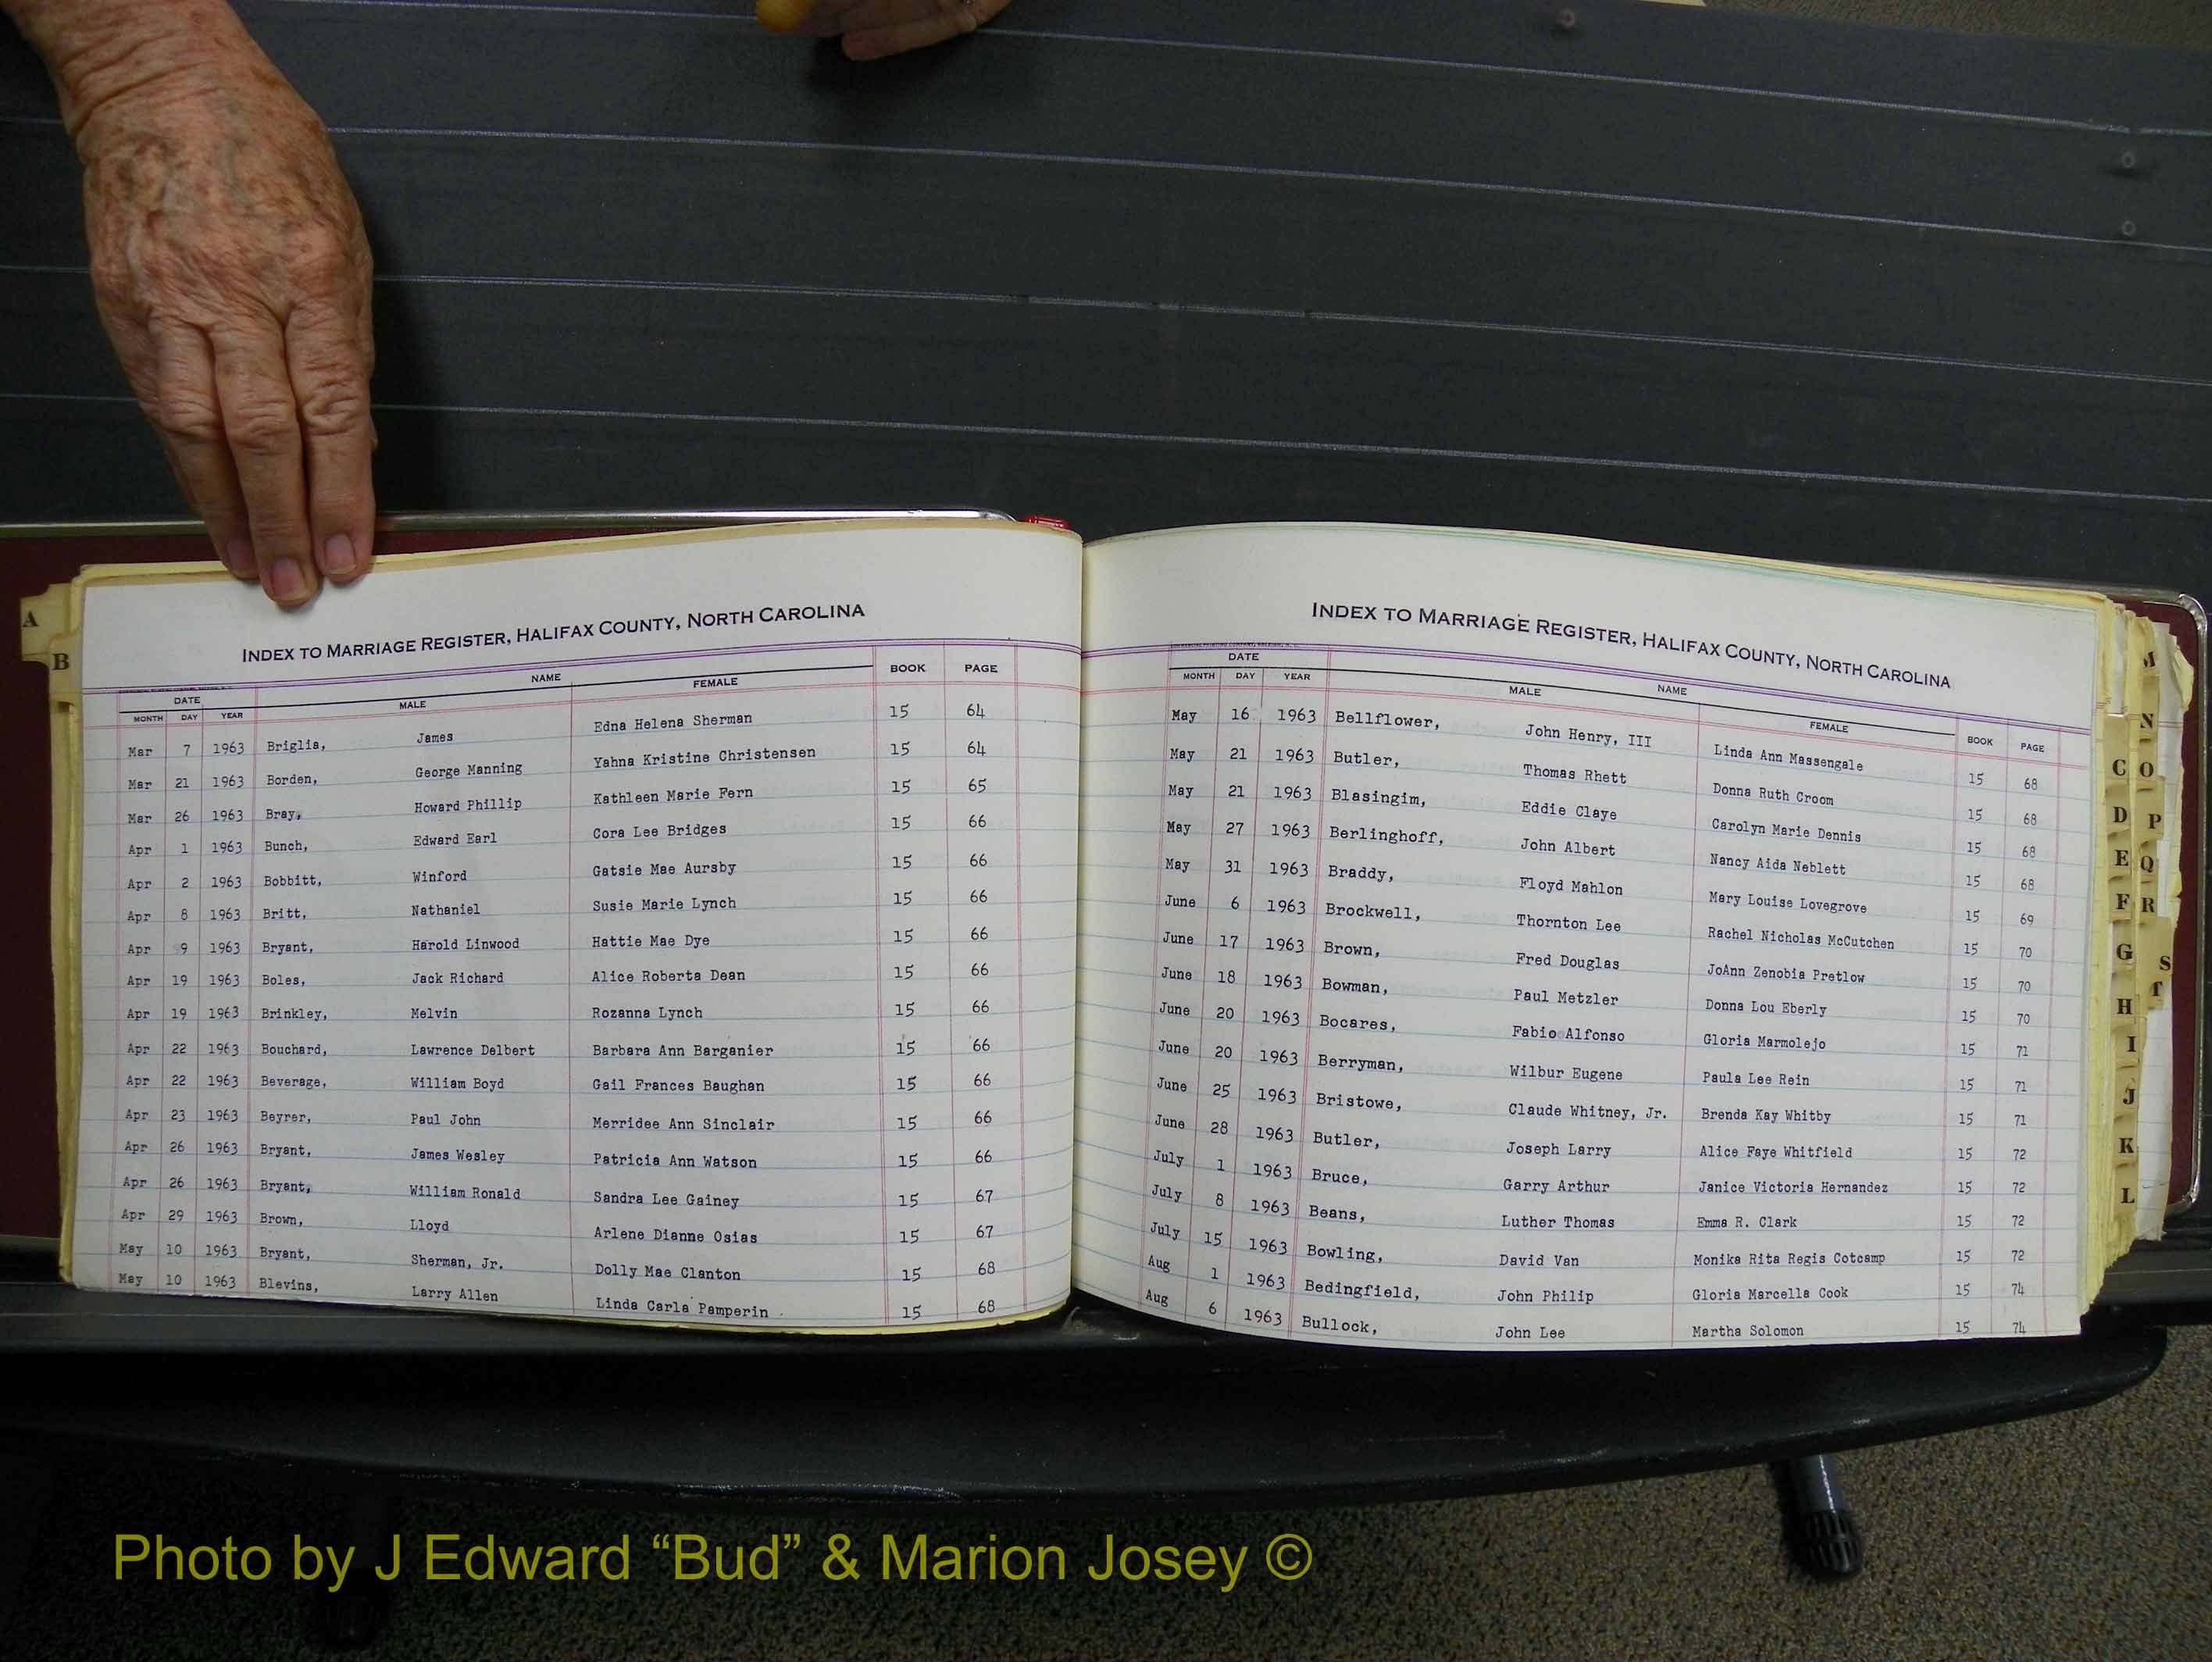 INDEX TO MARRIAGE REGISTER, HALIFAX COUNTY, NORTH CAROLINA
DATE NAME BOOK PAGE
MONTH DAY YEAR MALE FEMALE
Mar 7 1963 Briglia, James Edna Helena Sherman 15 64
Mar 21 1963 Borden, George Manning Yahna Kristine Christensen 15 64
Mar 26 1963 Bray, Howard Phillip Kathleen Marie Fern 15 65
Apr 1 1963 Bunch, Edward Earl Cora Lee Bridges 15 66
Apr 2 1963 Bobbitt, Winford Gatsie Mae Aursby 15 66
Apr 8 1963 Britt, Nathaniel Susie Marie Lynch 15 66
Apr 9 1963 Bryant, Harold Linwood Hattie Mae Dye 15 66
Apr 19 1963 Boles, Jack Richard Alice Roberta Dean 15 66
Apr 19 1963 Brinkley, Melvin Rozanna Lynch 15 66
Apr 22 1963 Bouchard, Lawrence Delbert Barbara Ann Barganier 15 66
Apr 22 1963 Beverage, William Boyd Gail Frances Baughan 15 66
Apr 23 1963 Beyrer, Paul John Merridee Ann Sinclair 15 66
Apr 26 1963 Bryant, James Wesley Patricia Ann Watson 15 66
Apr 26 1963 Bryant, William Ronald Sandra Lee Gainey 15 67
Apr 29 1963 Brown, Lloyd Arlene Dianne Osias 15 67
May 10 1963 Bryant, Sherman, Jr. Dolly Mae Clanton 15 68
May 10 1963 Blevins, Larry Allen Linda Carla Pamperin 15 68
A
B
INDEX TO MARRIAGE REGISTER, HALIFAX COUNTY, NORTH CAROLINA
DATE NAME
MONTH DAY YEAR MALE FEMALE BOOK PAGE
May 16 1963 Bellflower, John Henry, III Linda Ann Massengale 15 68
May 21 1963 Butler, Thomas Rhett Donna Ruth Croom 15 68
May 21 1963 Blasingim, Eddie Claye Carolyn Marie Dennis 15 68
May 27 1963 Berlinghoff, John Albert Nancy Aida Neblett 15 68
May 31 1963 Braddy, Floyd Mahlon Mary Louise Lovegrove 15 69
June 6 1963 Brockwell, Thornton Lee Rachel Nicholas McCutchen 15 70
June 17 1963 Brown, Fred Douglas JoAnn Zenobia Pretlow 15 70
June 18 1963 Bowman, Paul Metzler Donna Lou Eberly 15 70
June 20 1963 Bocares, Fabio Alfonso Gloria Marmolejo 15 71
June 20 1963 Berryman, Wilbur Eugene Paula Lee Rein 15 71
June 25 1963 Bristowe, Claude Whitney, Jr. Brenda Kay Whitby 15 71
June 28 1963 Butler, Joseph Larry Alice Faye Whitfield 15 72
July 1 1963 Bruce, Garry Arthur Janice Victoria Hernandez 15 72
July 8 1963 Beans, Luther Thomas Emma R. Clark 15 72
July 15 1963 Bowling, David Van Monika Rita Regis Cotcamp 15 72
Aug 1 1963 Bedingfield, John Philip Gloria Marcella Cook 15 74
Aug 6 1963 Bullock, John Lee Martha Solomon 15 74
C
D
E
F
G
H
I
J
K
L
M
N
O
P
Q
R
S
T
Photo by J Edward “Bud” & Marion Josey ©